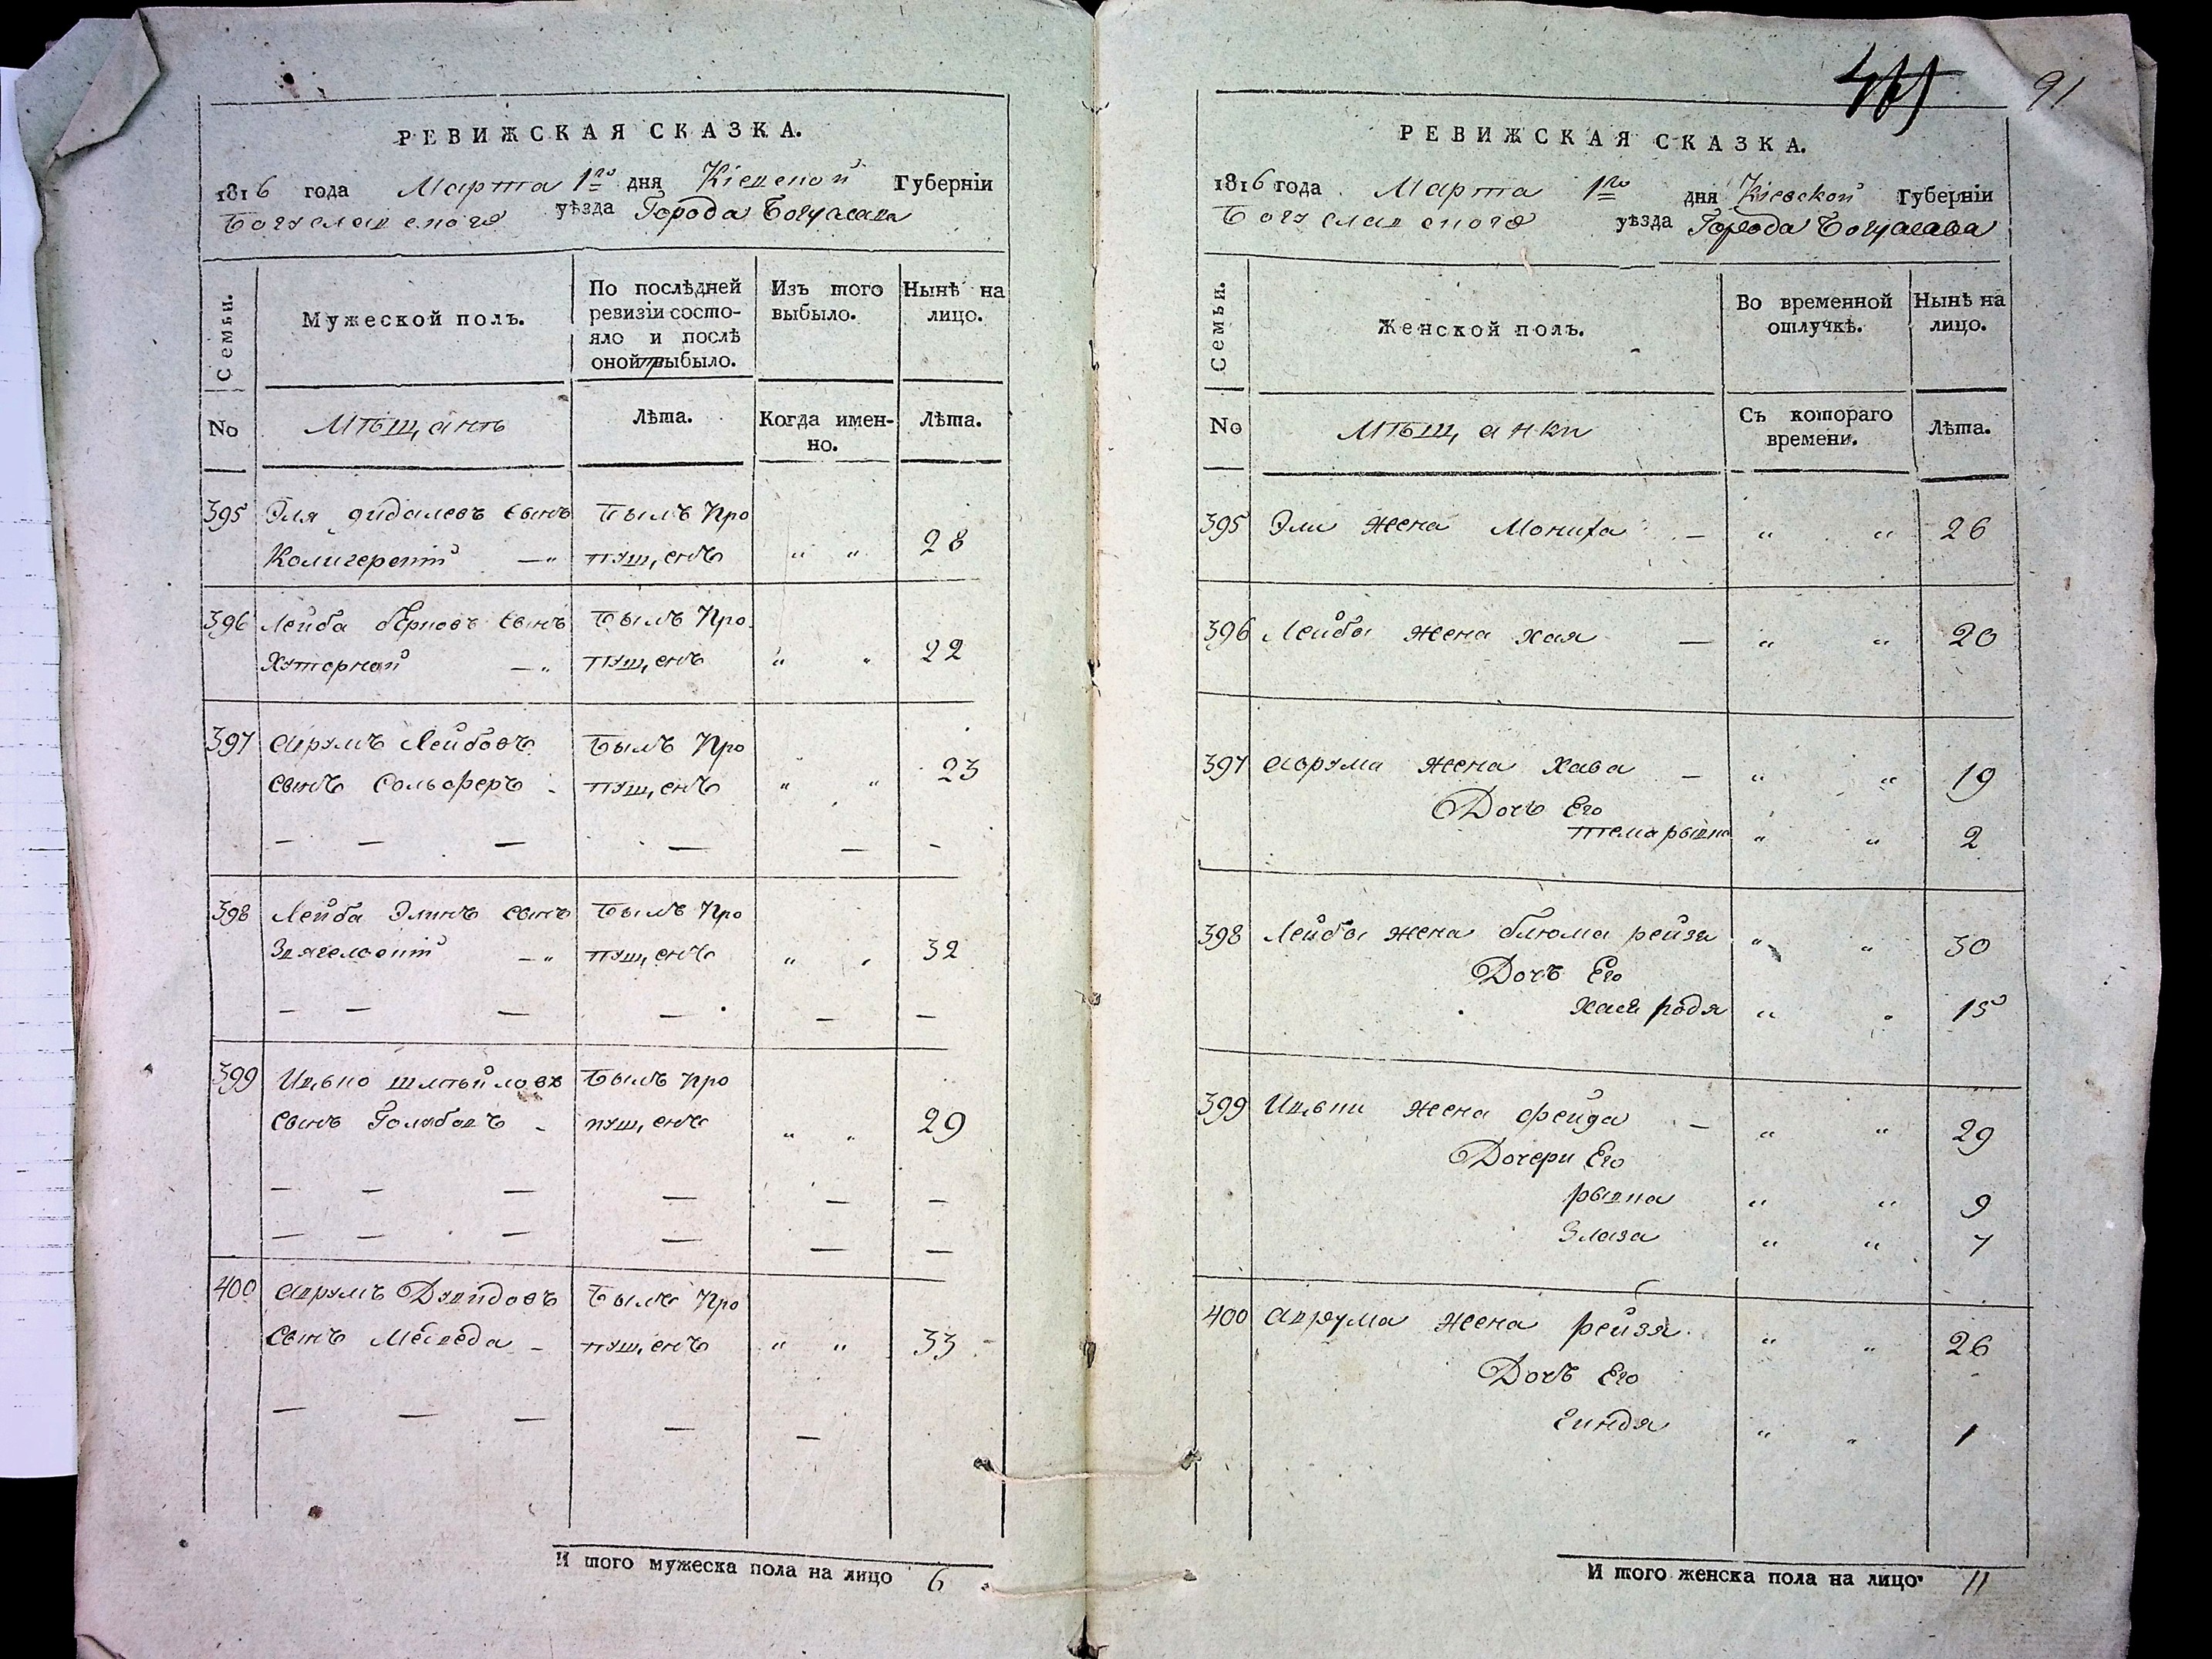 РЕВИЖСКАЯ СКАЗКА.
1816 года Марта 1го дня Кіевской Губерніи
Богуславского уѣзда Города Богуслава
Семьи.
Мужеской полъ.
По послѣдней ревизіи состояло и послѣ оной прибыло.
Изъ того выбыло.
Нынѣ на лицо.
No
Мѣщанъ
Лѣта.
Когда именно.
Лѣта.
395 Эля Сынъ Былъ Про
пущенъ " " 28
396 Лейба Берковъ Сынъ Былъ Про
Хуторной — " пущенъ " " 22
397 Аврумъ Лейбовъ Былъ Про
Сынъ Сольоферъ - пущенъ " " 23
— — — — — -
398 Лейба Элинъ Сынъ Былъ Про
— " пущенъ " " 32
— — — — — —
399 Ицько Шмѣйловъ Былъ Про
Сынъ Голубовъ - пущенъ " " 29
— — — — — —
— — — — — —
400 Аврумъ Дувидовъ Былъ Про
Сынъ Медведа - пущенъ " " 33 -
— — — — —
И того мужеска пола на лицо 6
91
РЕВИЖСКАЯ СКАЗКА.
1816 года Марта 1го дня Кіевской Губерніи
Богуславского уѣзда Города Богуслава
Семьи.
Женской полъ.
Во временной отлучкѣ.
Нынѣ на лицо.
No
Мѣщанки
Съ котораго времени.
Лѣта.
395 Эли жена — " " 26
396 Лейбы жена Хая — " " 20
397 Аврума жена Хава — " " 19
Дочь Его
" " 2
398 Лейбы жена Блюма Рейзя " " 30
Дочь Его
Хася Родя " " 15
399 Ицьки жена Фейга — " " 29
Дочери Его
Рывка " " 9
Злата " " 7
400 Аврума жена Рейзя " " 26
Дочь Его
Гиндя " " 1
И того женска пола на лицо 11